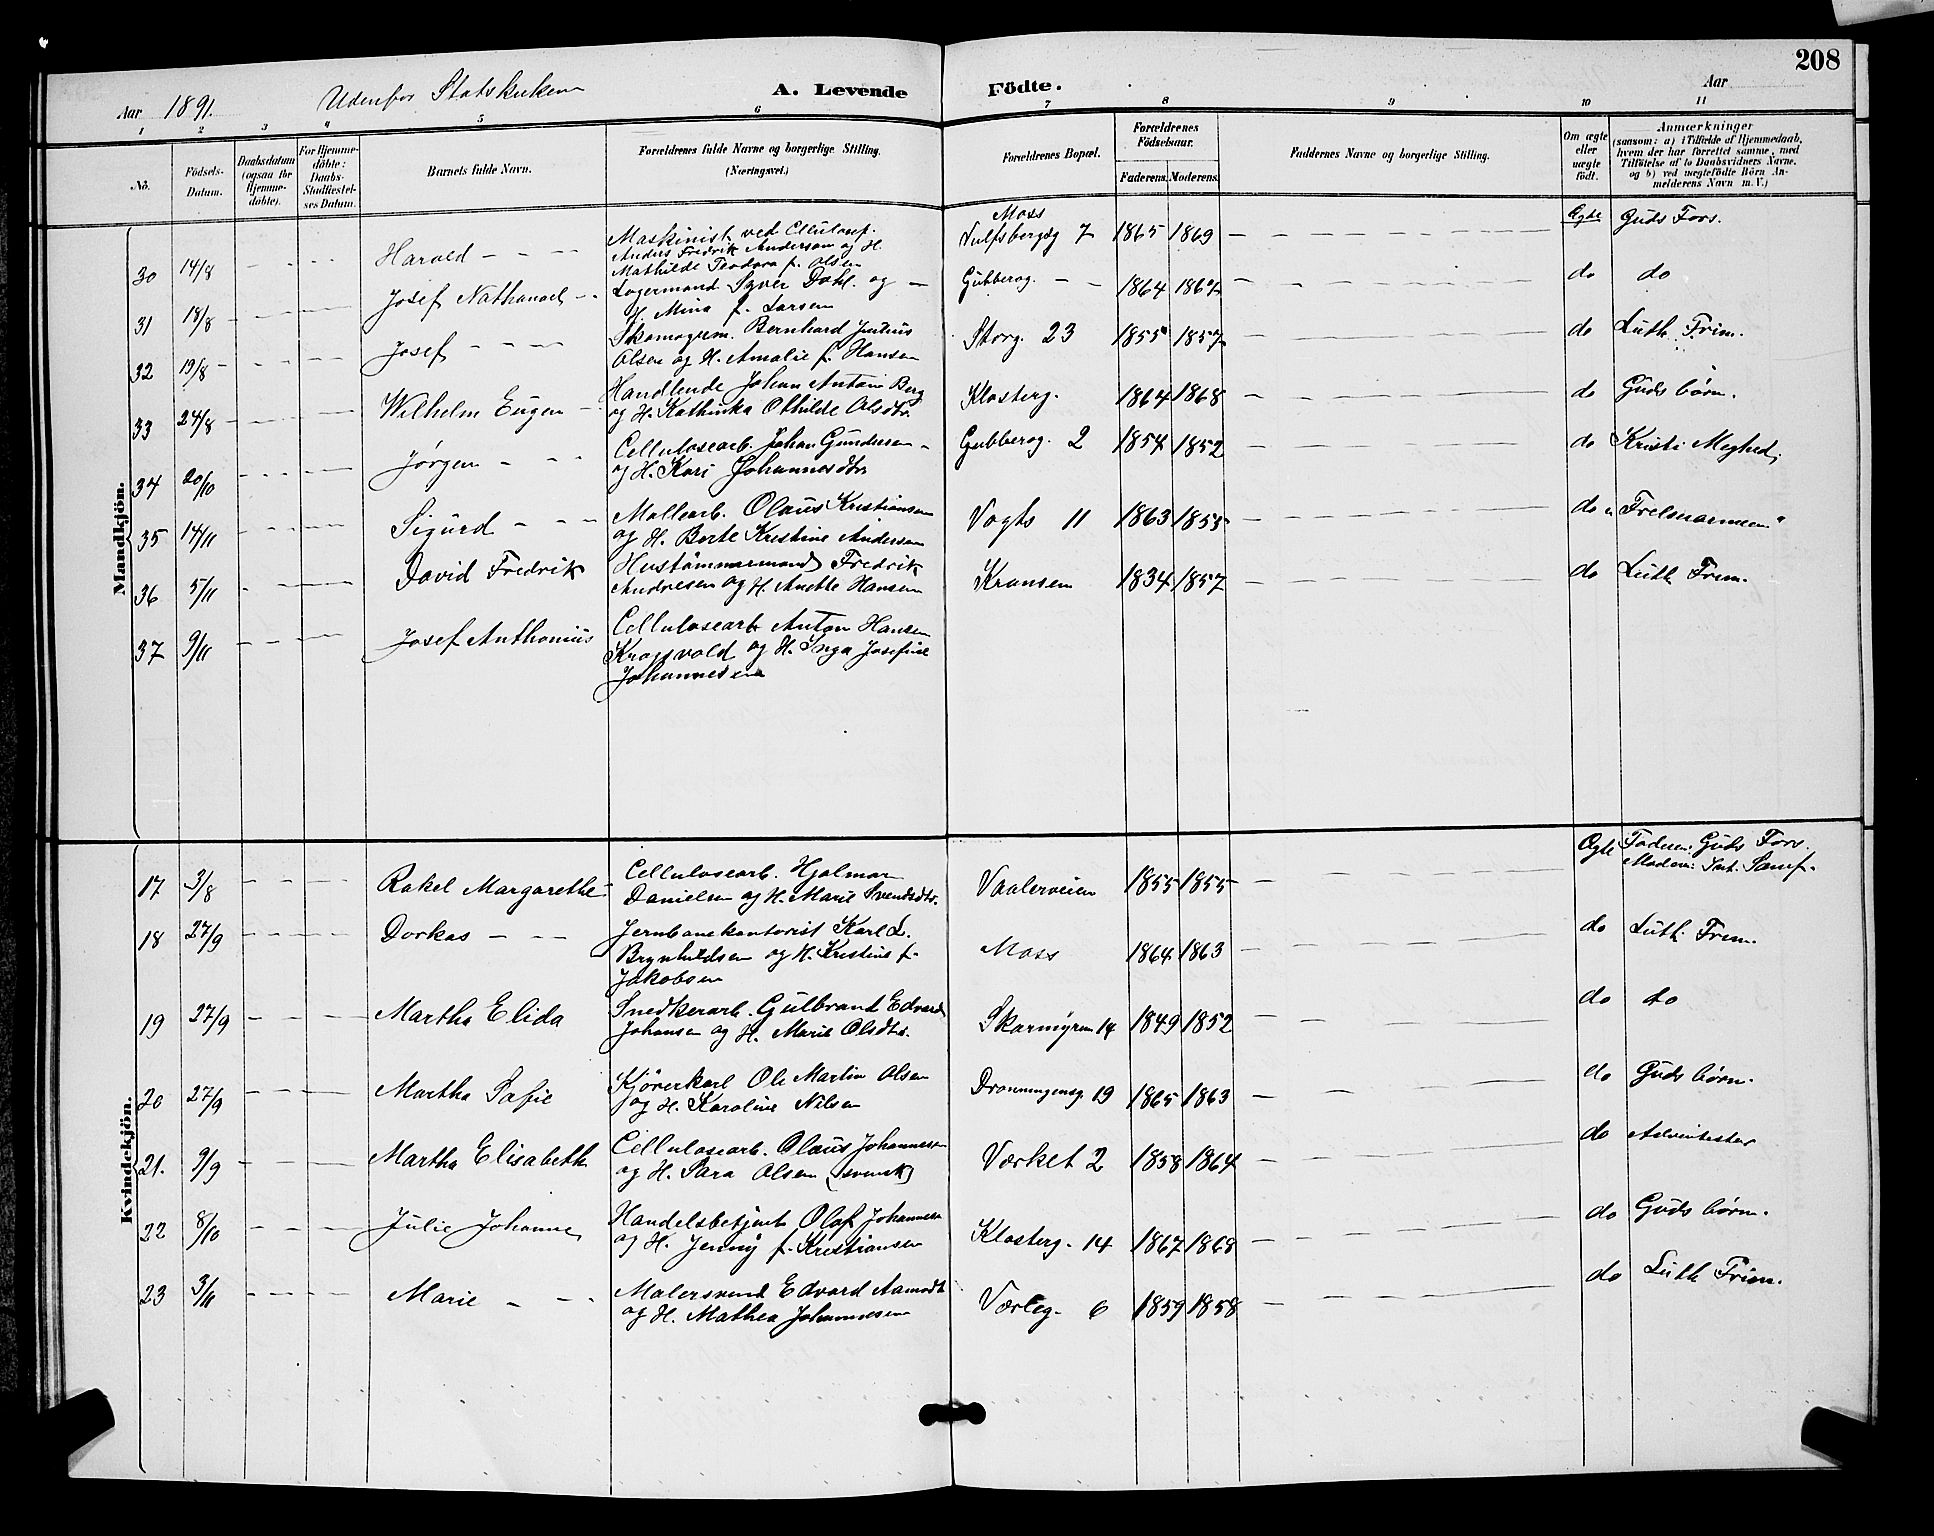 208
Aar 1891. Udenfor Statskirken A. Levende Födte. Aar
1 2 3 4 5 6 7 8 9 10 11
No. Födsels-Datum. Daabsdatum (ogsaa for Hjemme-döbte). For Hjemme-döbte: Daabs-Stadfæstel-ses Datum. Barnets fulde Navn. Forældrenes fulde Navne og borgerlige Stilling. (Næringsvei.) Forældrenes Bopæl. Forældrenes Födselsaar. Faderens. Moderens. Faddernes Navne og borgerlige Stilling. Om ægte eller uægte födt. Anmærkninger (saasom: a) i Tilfælde af Hjemmedaab, hvem der har forrettet samme, med Tilföielse af to Daabsvidners Navne, og b) ved uægtefödte Börn An-melderens Navn m. V.)
Mandkjön.
30 14/8 Harald Maskinist ved Cellulosef. Moss Ægte Guds Fors.
Anders Fredrik Andersen og H. Vulfsbergsg 7 1865 1869
Mathilde Teodora f. Olsen
31 18/8 Josef Nathanael Lagermand Syver Dahl og Gubberog. 1864 1867 do do
H. Mina f. Larsen
32 19/8 Josef Skomagerm. Bernhard Justius Storg. 23 1855 1857 do Luth. Frim.
Olsen og H. Amalie f. Hansen
33 24/8 Wilhelm Eugen Handlende Johan Anton Berg Klosterg. 1864 1868 do Guds börn.
og H. Kathinka Othilde Olsdtr.
34 20/10 Jörgen Cellulosearb. Johan Gundersen Gubberog. 2 1854 1852 do Kristi Meghed.
og H. Kari Johannesdtr
35 14/11 Sigurd Möllearb. Olaus Kristiansen Vogts 11 1863 1855 do "Frelsesarmeen"
og H. Berte Kristine Andersen
36 5/11 David Fredrik Hustömmermand Fredrik Kransen 1834 1857 do Luth. Frim.
Andresen og H. Anette Hansen
37 9/11 Josef Anthonius Cellulosearb Anton Hansen
Kragsvold og H. Inga Josefine
Johannesen
Kvindekjön.
17 3/8 Rakel Margarethe Cellulosearb. Hjalmar Vaalerveien 1855 1855 Ægte Faderen: Guds Fors.
Danielsen og H. Marie Svendsdtr. Moderen: Ssamf.
18 27/9 Dorkas Jernbanekontorist Karl L. Moss 1864 1863 do Luth. Frim.
Brynhildsen og H. Kristine f.
Jakobsen
19 27/9 Martha Elida Snedkerarb. Gulbrand Edvard Skarmyren 14 1849 1852 do do
Johansen og H. Marie Olsdtr.
20 27/9 Martha Sofie Kjörerkarl Ole Martin Olsen Dronningensg. 19 1865 1863 do Guds börn.
og H. Karoline Nilsen
21. 9/9 Martha Elisabeth Cellulosearb. Olaus Johannesen Værket 2 1858 1864 do Adventister
og H. Sara Olsen (svensk)
22 8/10 Julie Johanne Handelsbetjent Olaf Johannesen Klosterg. 14 1867 1868 do Guds börn.
og H. Jenny f. Kristiansen
23 3/11 Marie Malersvend Edvard Aamodt Værleg. 6 1859 1858 do Luth Frim.
og H. Mathea Johannesen